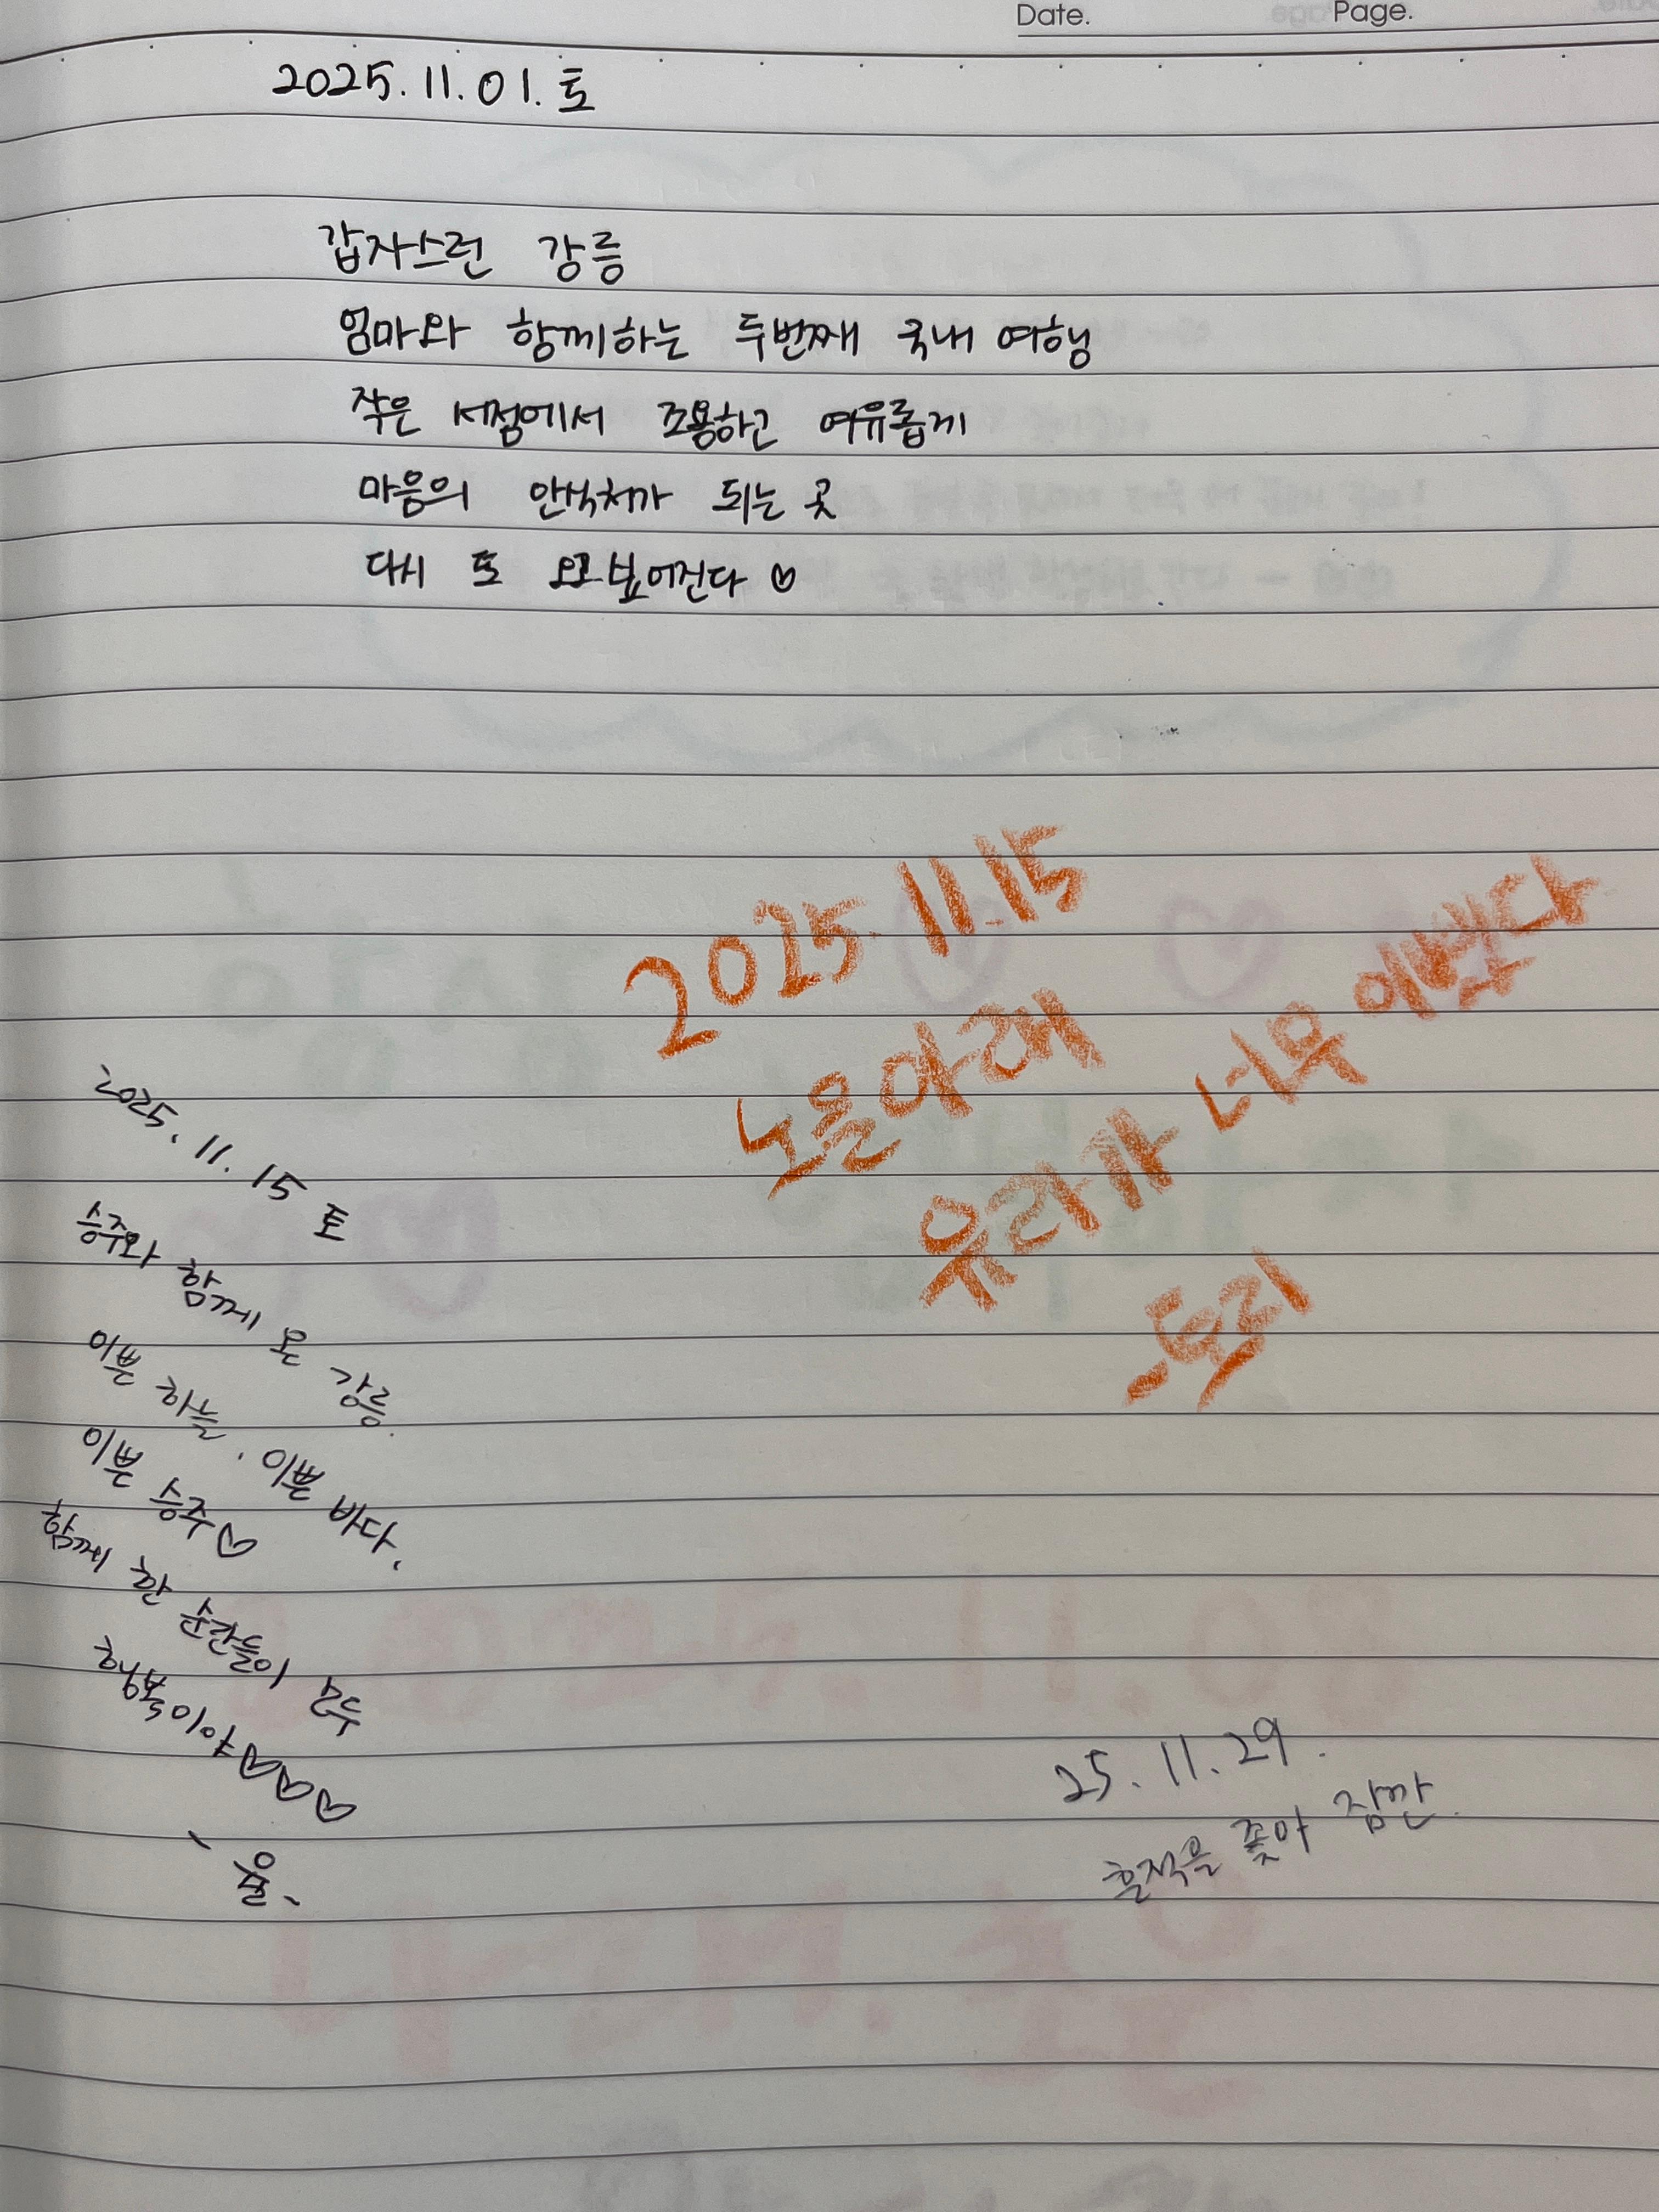 Date. Page.
2025.11.01.토
갑자스런 강릉
엄마와 함께하는 두번째 국내 여행
작은 서점에서 조용하고 여유롭게
마음의 안식처가 되는 곳
다시 또 오고싶어진다♡
2025.11.15
노을아래
유라가 너무 이쁘다
-도리
2025.11.15 토
승주와 함께 온 강릉.
이쁜 가을, 이쁜 바다,
이쁜 승주♡
함께한 순간들이
행복이어♡♡♡
25.11.29.
흔적을 쫓아 잠깐.